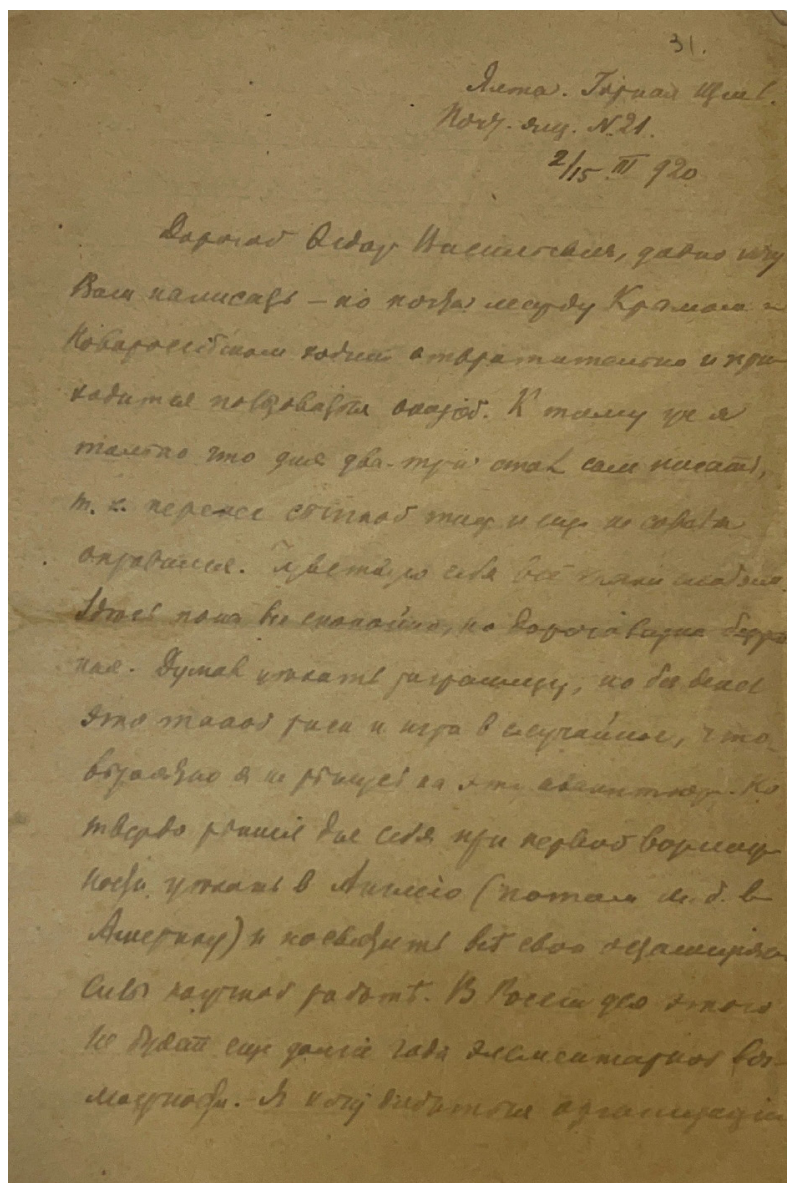 31.
Ялта. Горная Щел.
Почт. ящ. № 21.
2/15 III 920
Дорогой Федор Васильевич, давно хочу
Вам написать – но почта между Крымом и
Новороссийском ходит отвратительно и при-
ходится пользоваться оказией. К тому же я
только что дня два-три стал сам писать,
т. к. перенес сыпной тиф и еще не совсем
оправился. Чувствую себя все
Здесь пока все спокойно, но дороговизна безум-
ная. Думал уехать заграницу, но без денег
это такой риск и игра в случайное, что
я не решусь на эту авантюру. Но
твердо решил для себя при первой возмож-
ности уехать в Англию (потом м. б. в
Америку) и посвятить всѣ свои
силы научной работѣ. В России для этого
не будет еще долгие годы элементарной воз-
можности. – Я хочу добиться организации